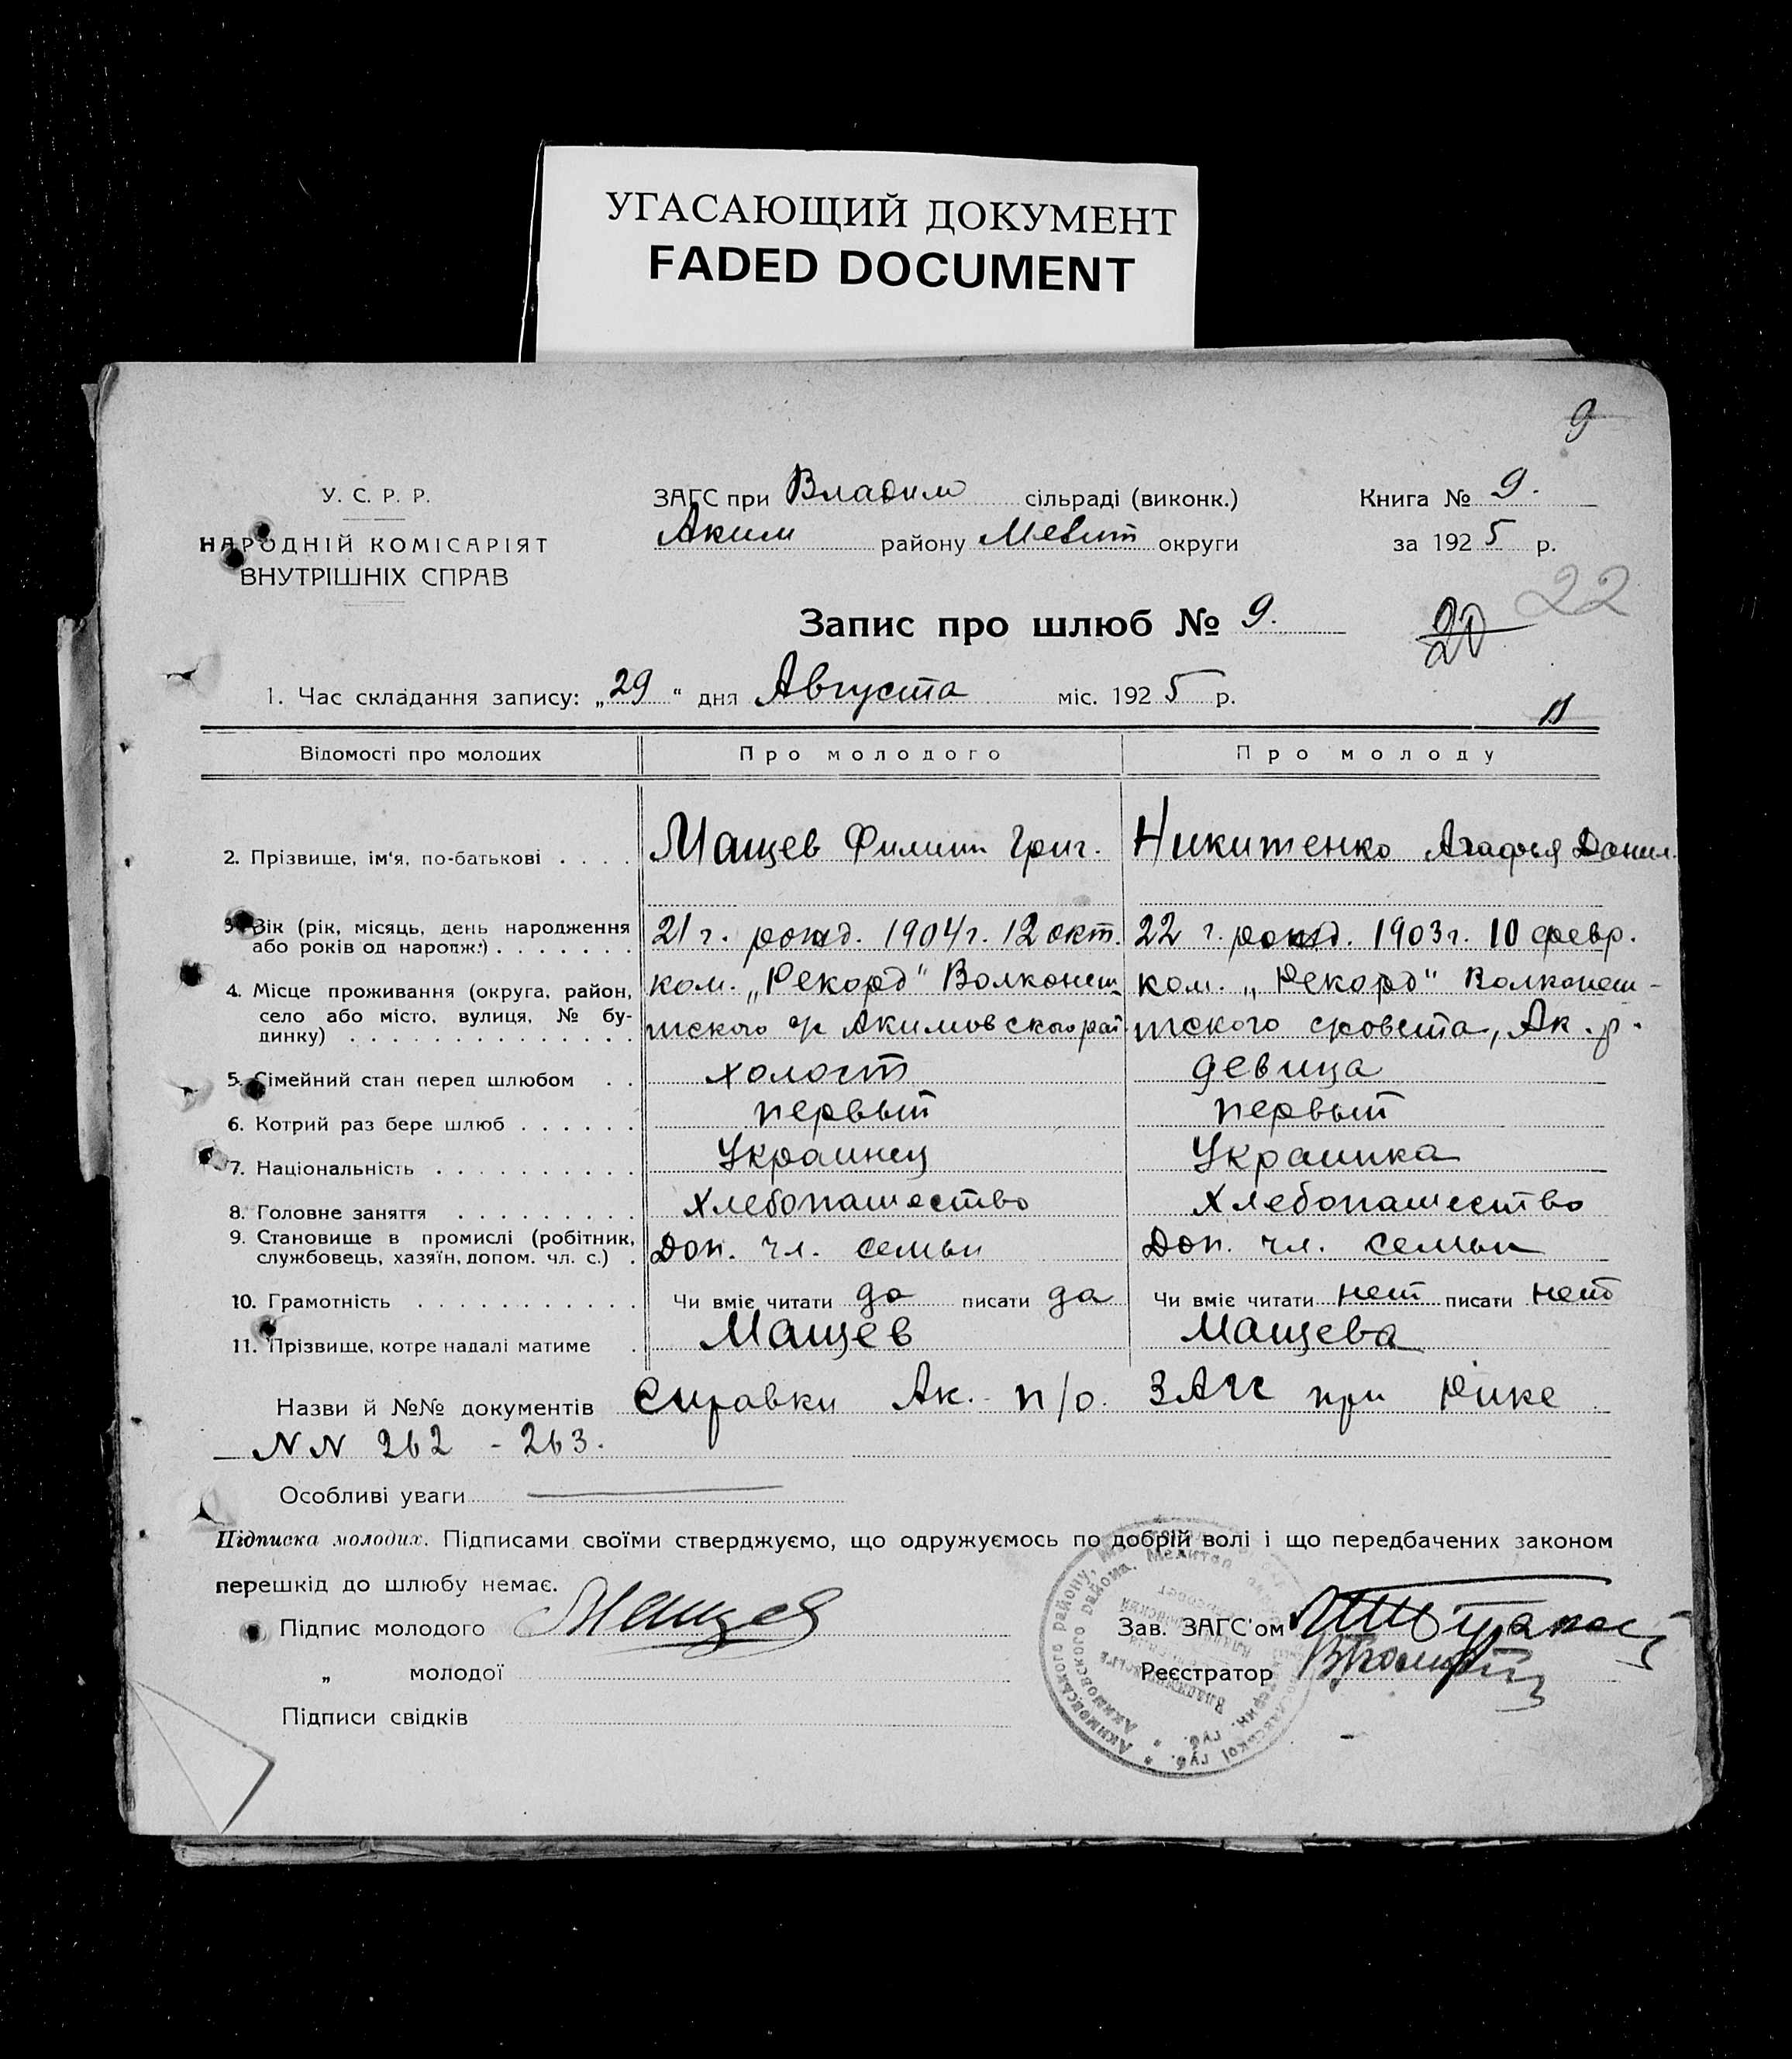 УГАСАЮЩИЙ ДОКУМЕНТ
FADED DOCUMENT
9
У. С. Р. Р.
НАРОДНІЙ КОМІСАРІЯТ
ВНУТРІШНІХ СПРАВ
ЗАГС при Владим сільраді (виконк.)
Аким району Мелит округи
Книга № 9.
за 1925 р.
22
Запис про шлюб № 9.
20
1. Час складання запису: „29“ дня Августа міс. 1925 р.
11
Відомості про молодих Про молодого Про молоду
2. Прізвище, ім'я, по-батькові . . . . Мащев Филипп Григ. Никитенко Агафья Данил.
3. Вік (рік, місяць, день народження
або років од народж.) . . . . . . . 21 г. рожд. 1904 г. 12 окт. 22 г. рожд. 1903 г. 10 февр.
4. Місце проживання (округа, район,
село або місто, вулиця, № бу-
динку) . . . . . . . . . . . . . .
ком. „Рекорд“ Волконеш ком. „Рекорд“ Волконеш-
тского Акимовского рай тского с/совета, Ак. р.
5. Сімейний стан перед шлюбом . . холост девица
6. Котрий раз бере шлюб . . . . . . первый первый
7. Національність . . . . . . . . . . Украинец Украинка
8. Головне заняття . . . . . . . . . Хлебопашество Хлебопашество
9. Становище в промислі (робітник,
службовець, хазяїн, допом. чл. с.) . Доп. чл. семьи Доп. чл. семьи
10. Грамотність . . . . . . . . . . . Чи вміє читати да писати да Чи вміє читати нет писати нет
11. Прізвище, котре надалі матиме . Мащев Мащева
Назви й №№ документів Справки Ак. п/о. ЗАГС при Рике
NN 262 - 263.
Особливі уваги
Підписка молодих. Підписами своїми стверджуємо, що одружуємось по добрій волі і що передбачених законом
перешкід до шлюбу немає.
Підпис молодого Мащев
„ молодої
Підписи свідків
Зав. ЗАГС'ом
Реєстратор
Акимовського району, Мелитоп
Акимовского района, Мелитоп
губ.